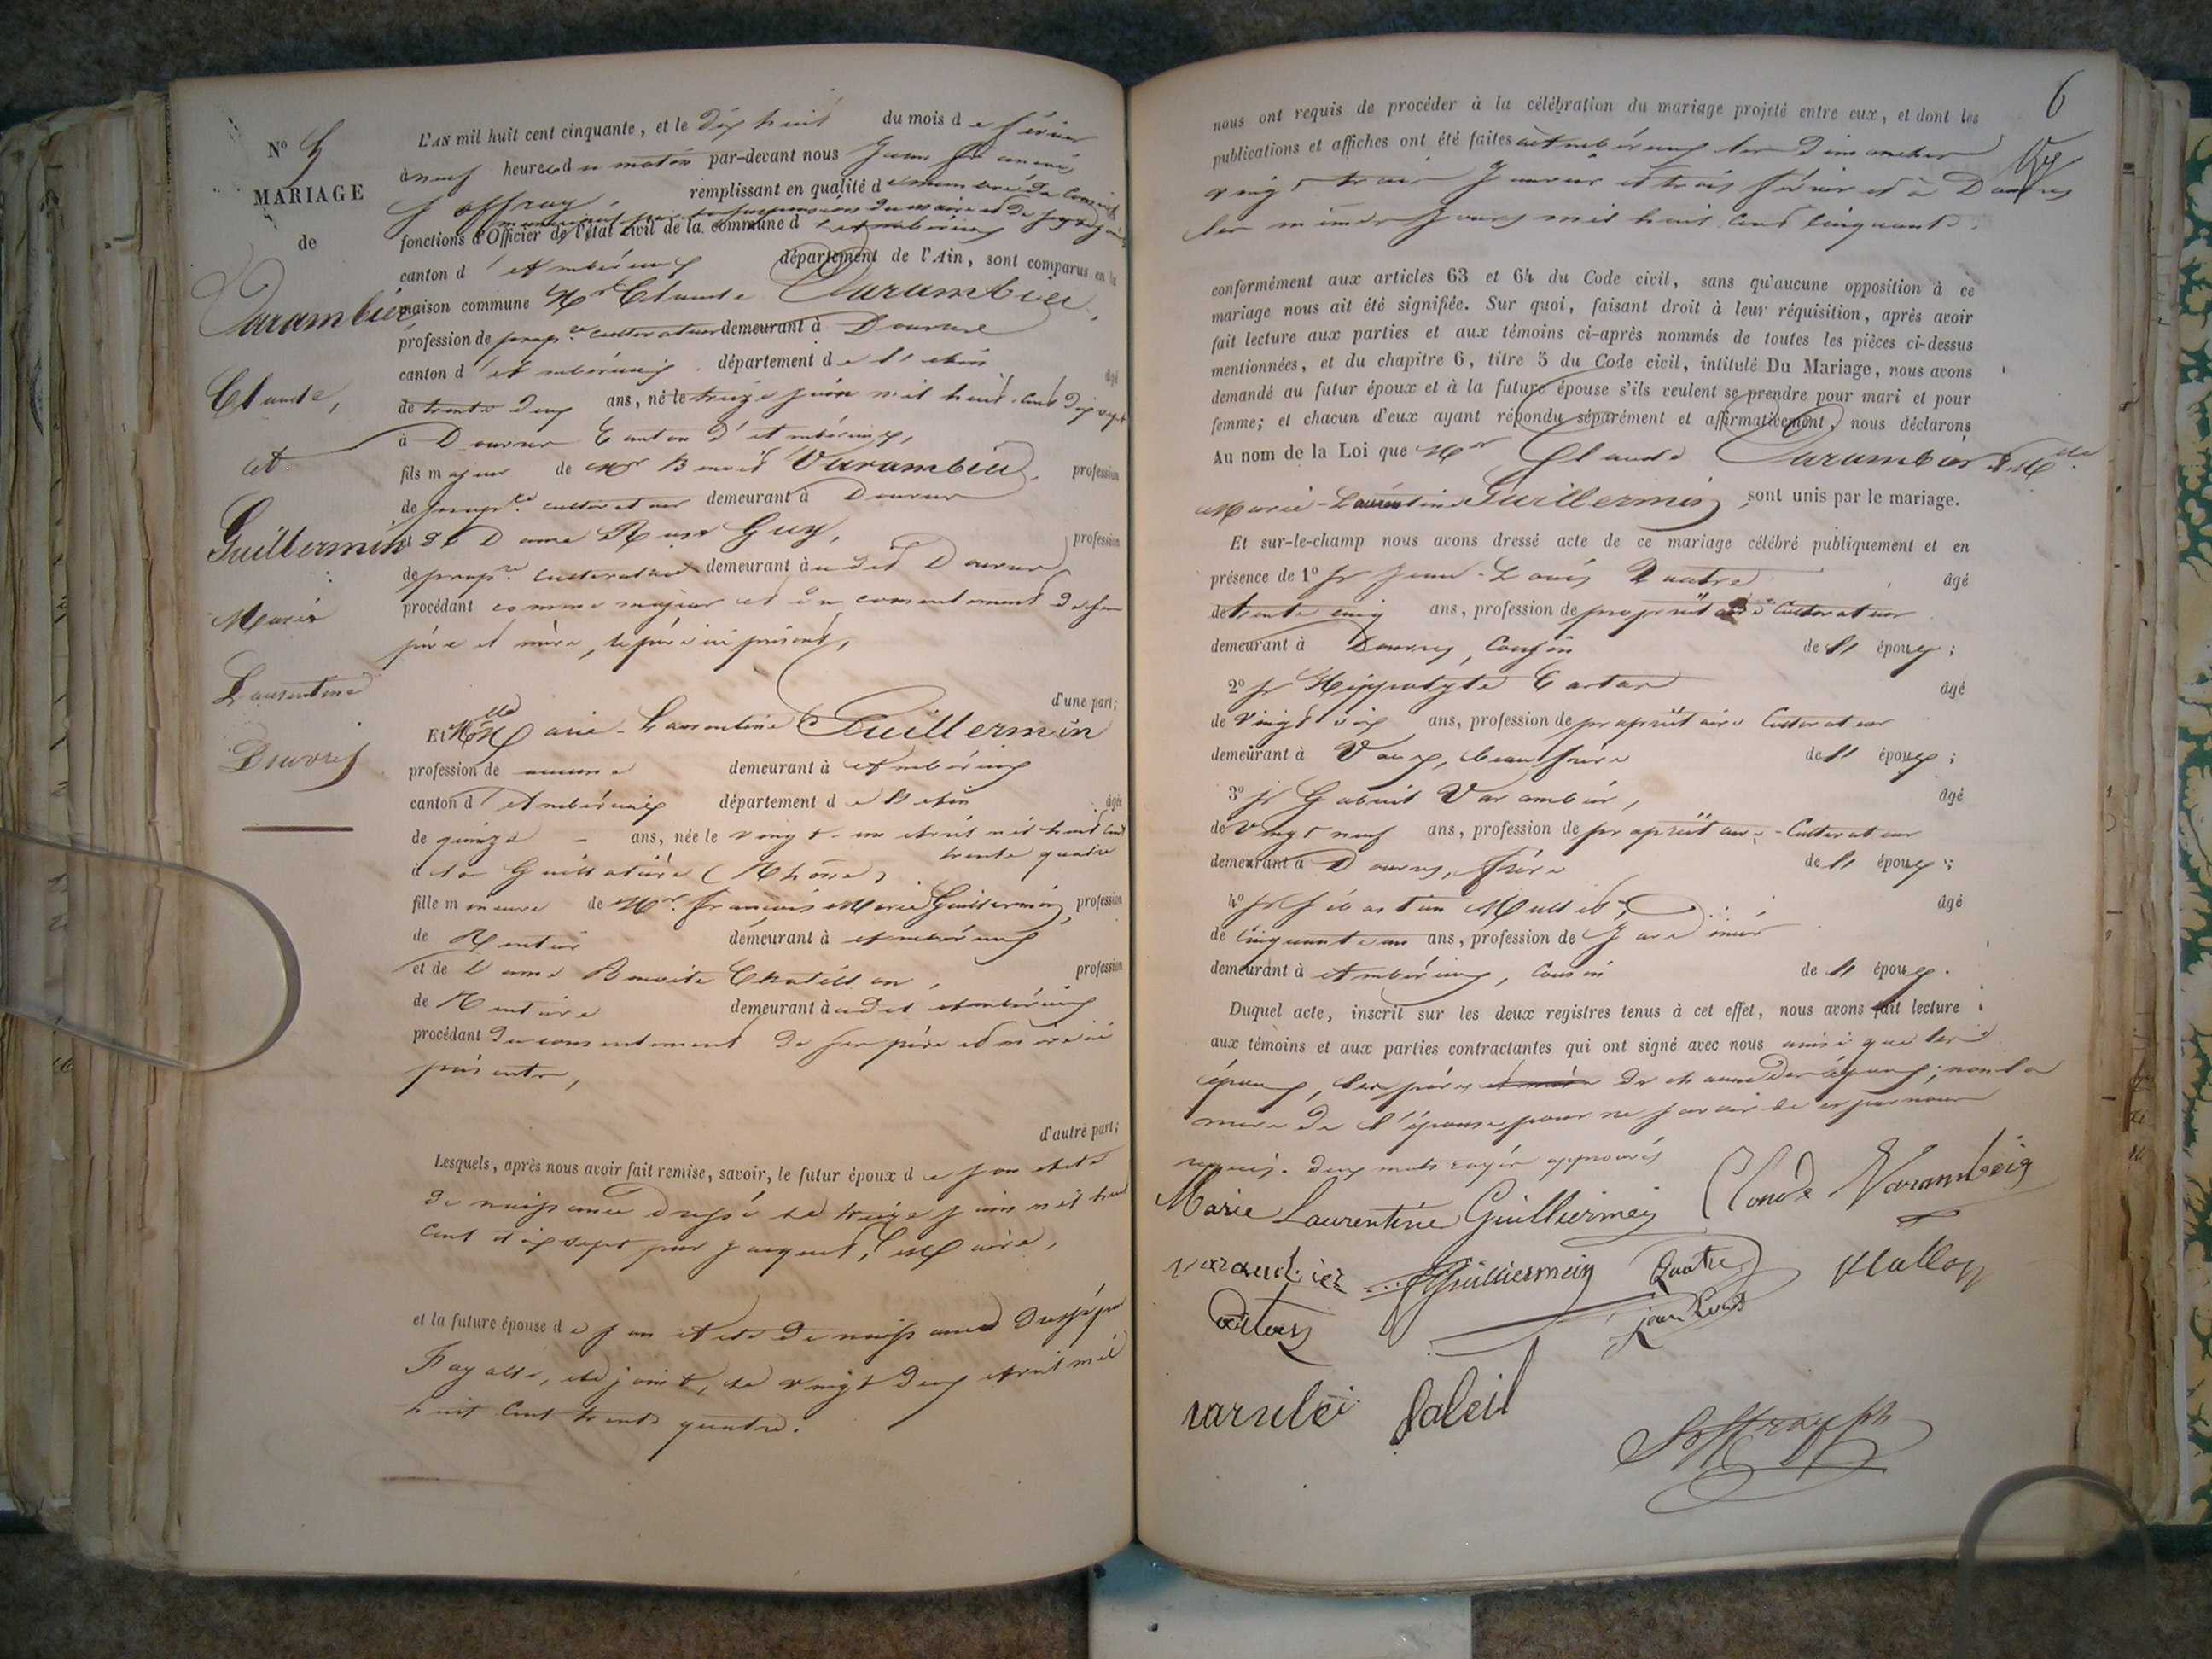 N° 5
MARIAGE
de
Varambier
Claude,
et
Guillermin
Marie
Laurentine
Douvres
L'AN mil huit cent cinquante, et le dix huit du mois de février
à neuf heures du matin par-devant nous Jean
Joffray, remplissant en qualité de membre du Conseil
municipal par la suspension du maire et de
fonctions d'Officier de l'état civil de la commune d'Ambérieux
canton d'Ambérieux département de l'Ain, sont comparus en la
maison commune Mr Claude Varambier,
profession de propre cultivateur demeurant à Douvres
canton d'Ambérieux département de l'Ain âgé
de trente deux ans, né le treize juin mil huit cent dix sept
à Douvres Canton d'Ambérieux,
fils majeur de Mr Benoit Varambier, profession
de propre cultivateur demeurant à Douvres
et de Dame Rose Guy, profession
de propre cultivatrice demeurant audit Douvres
procédant comme majeur et du consentement de ses
père et mère, le père ici présent,
d'une part;
Et Melle Marie-Laurentine Guillermin
profession de aucune demeurant à Ambérieux
canton d'Ambérieux département de l'Ain âgée
de quinze ans, née le vingt-un Avril mil huit cent
trente quatre
à la Guillotière (Rhône)
fille mineure de Mr François Marie Guillermin, profession
de Rentier demeurant à Ambérieux
et de Dame Benoite Chatillon, profession
de Rentière demeurant audit Ambérieux
procédant du consentement de ses père et mère ici
présents,
d'autre part;
Lesquels, après nous avoir fait remise, savoir, le futur époux de son Acte
de naissance dressé le treize juin mil huit
cent dix sept par Jacquet, Maire,
et la future épouse de son Acte de naissance dressé par
Fayolle, adjoint, le vingt deux Avril mil
huit cent trente quatre.
6
nous ont requis de procéder à la célébration du mariage projeté entre eux, et dont les
publications et affiches ont été faites à Ambérieux les dimanches
vingt trois Janvier et trois février et à Douvres
les mêmes jours mil huit cent cinquante.
conformément aux articles 63 et 64 du Code civil, sans qu'aucune opposition à ce
mariage nous ait été signifiée. Sur quoi, faisant droit à leur réquisition, après avoir
fait lecture aux parties et aux témoins ci-après nommés de toutes les pièces ci-dessus
mentionnées, et du chapitre 6, titre 5 du Code civil, intitulé Du Mariage, nous avons
demandé au futur époux et à la future épouse s'ils veulent se prendre pour mari et pour
femme; et chacun d'eux ayant répondu séparément et affirmativement, nous déclarons
Au nom de la Loi que Mr Claude Varambier et Melle
Marie-Laurentine Guillermin, sont unis par le mariage.
Et sur-le-champ nous avons dressé acte de ce mariage célébré publiquement et en
présence de 1° Sr Jean-Louis Quatre âgé
de trente cinq ans, profession de propriétaire Cultivateur
demeurant à Douvres, Cousin de l'époux;
2° Sr Hippolyte âgé
de vingt six ans, profession de propriétaire Cultivateur
demeurant à Vaux, beau frère de l'époux;
3° Sr Gabriel Varambier, âgé
de vingt neuf ans, profession de propriétaire-Cultivateur
demeurant à Douvres, frère de l'époux;
4° Sr Sébastien âgé
de Cinquante un ans, profession de Jardinier
demeurant à Ambérieux, Cousin de l'époux.
Duquel acte, inscrit sur les deux registres tenus à cet effet, nous avons fait lecture
aux témoins et aux parties contractantes qui ont signé avec nous ainsi que les
époux, les pères et mère de chacun des époux; non la
mère de l'épouse pour ne savoir de ce par nous
requis. deux mots rayés approuvés
Marie Laurentine Guillermin Claude Varambier
Guillermin Quatre
jean Louis
Joffray